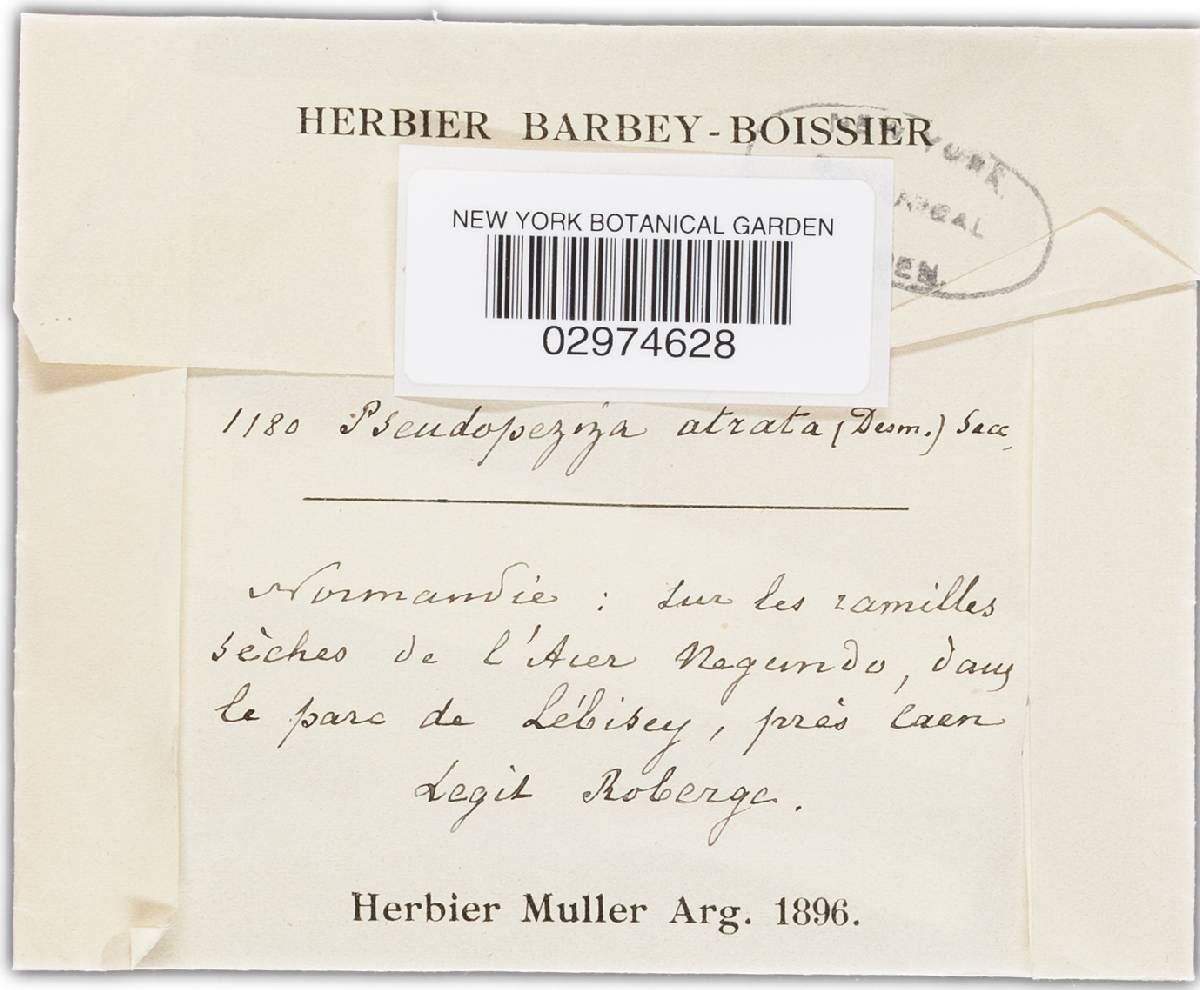 HERBIER BARBEY-BOISSIER
NEW YORK
NEW YORK BOTANICAL GARDEN
02974628
1180 Pseudopeziza atrata (Desm.) Sacc.
Normandie : sur les ramilles
sèches de l'Acer Negundo, dans
le parc de Lébisey, près Caen
Legit Roberge.
Herbier Muller Arg. 1896.